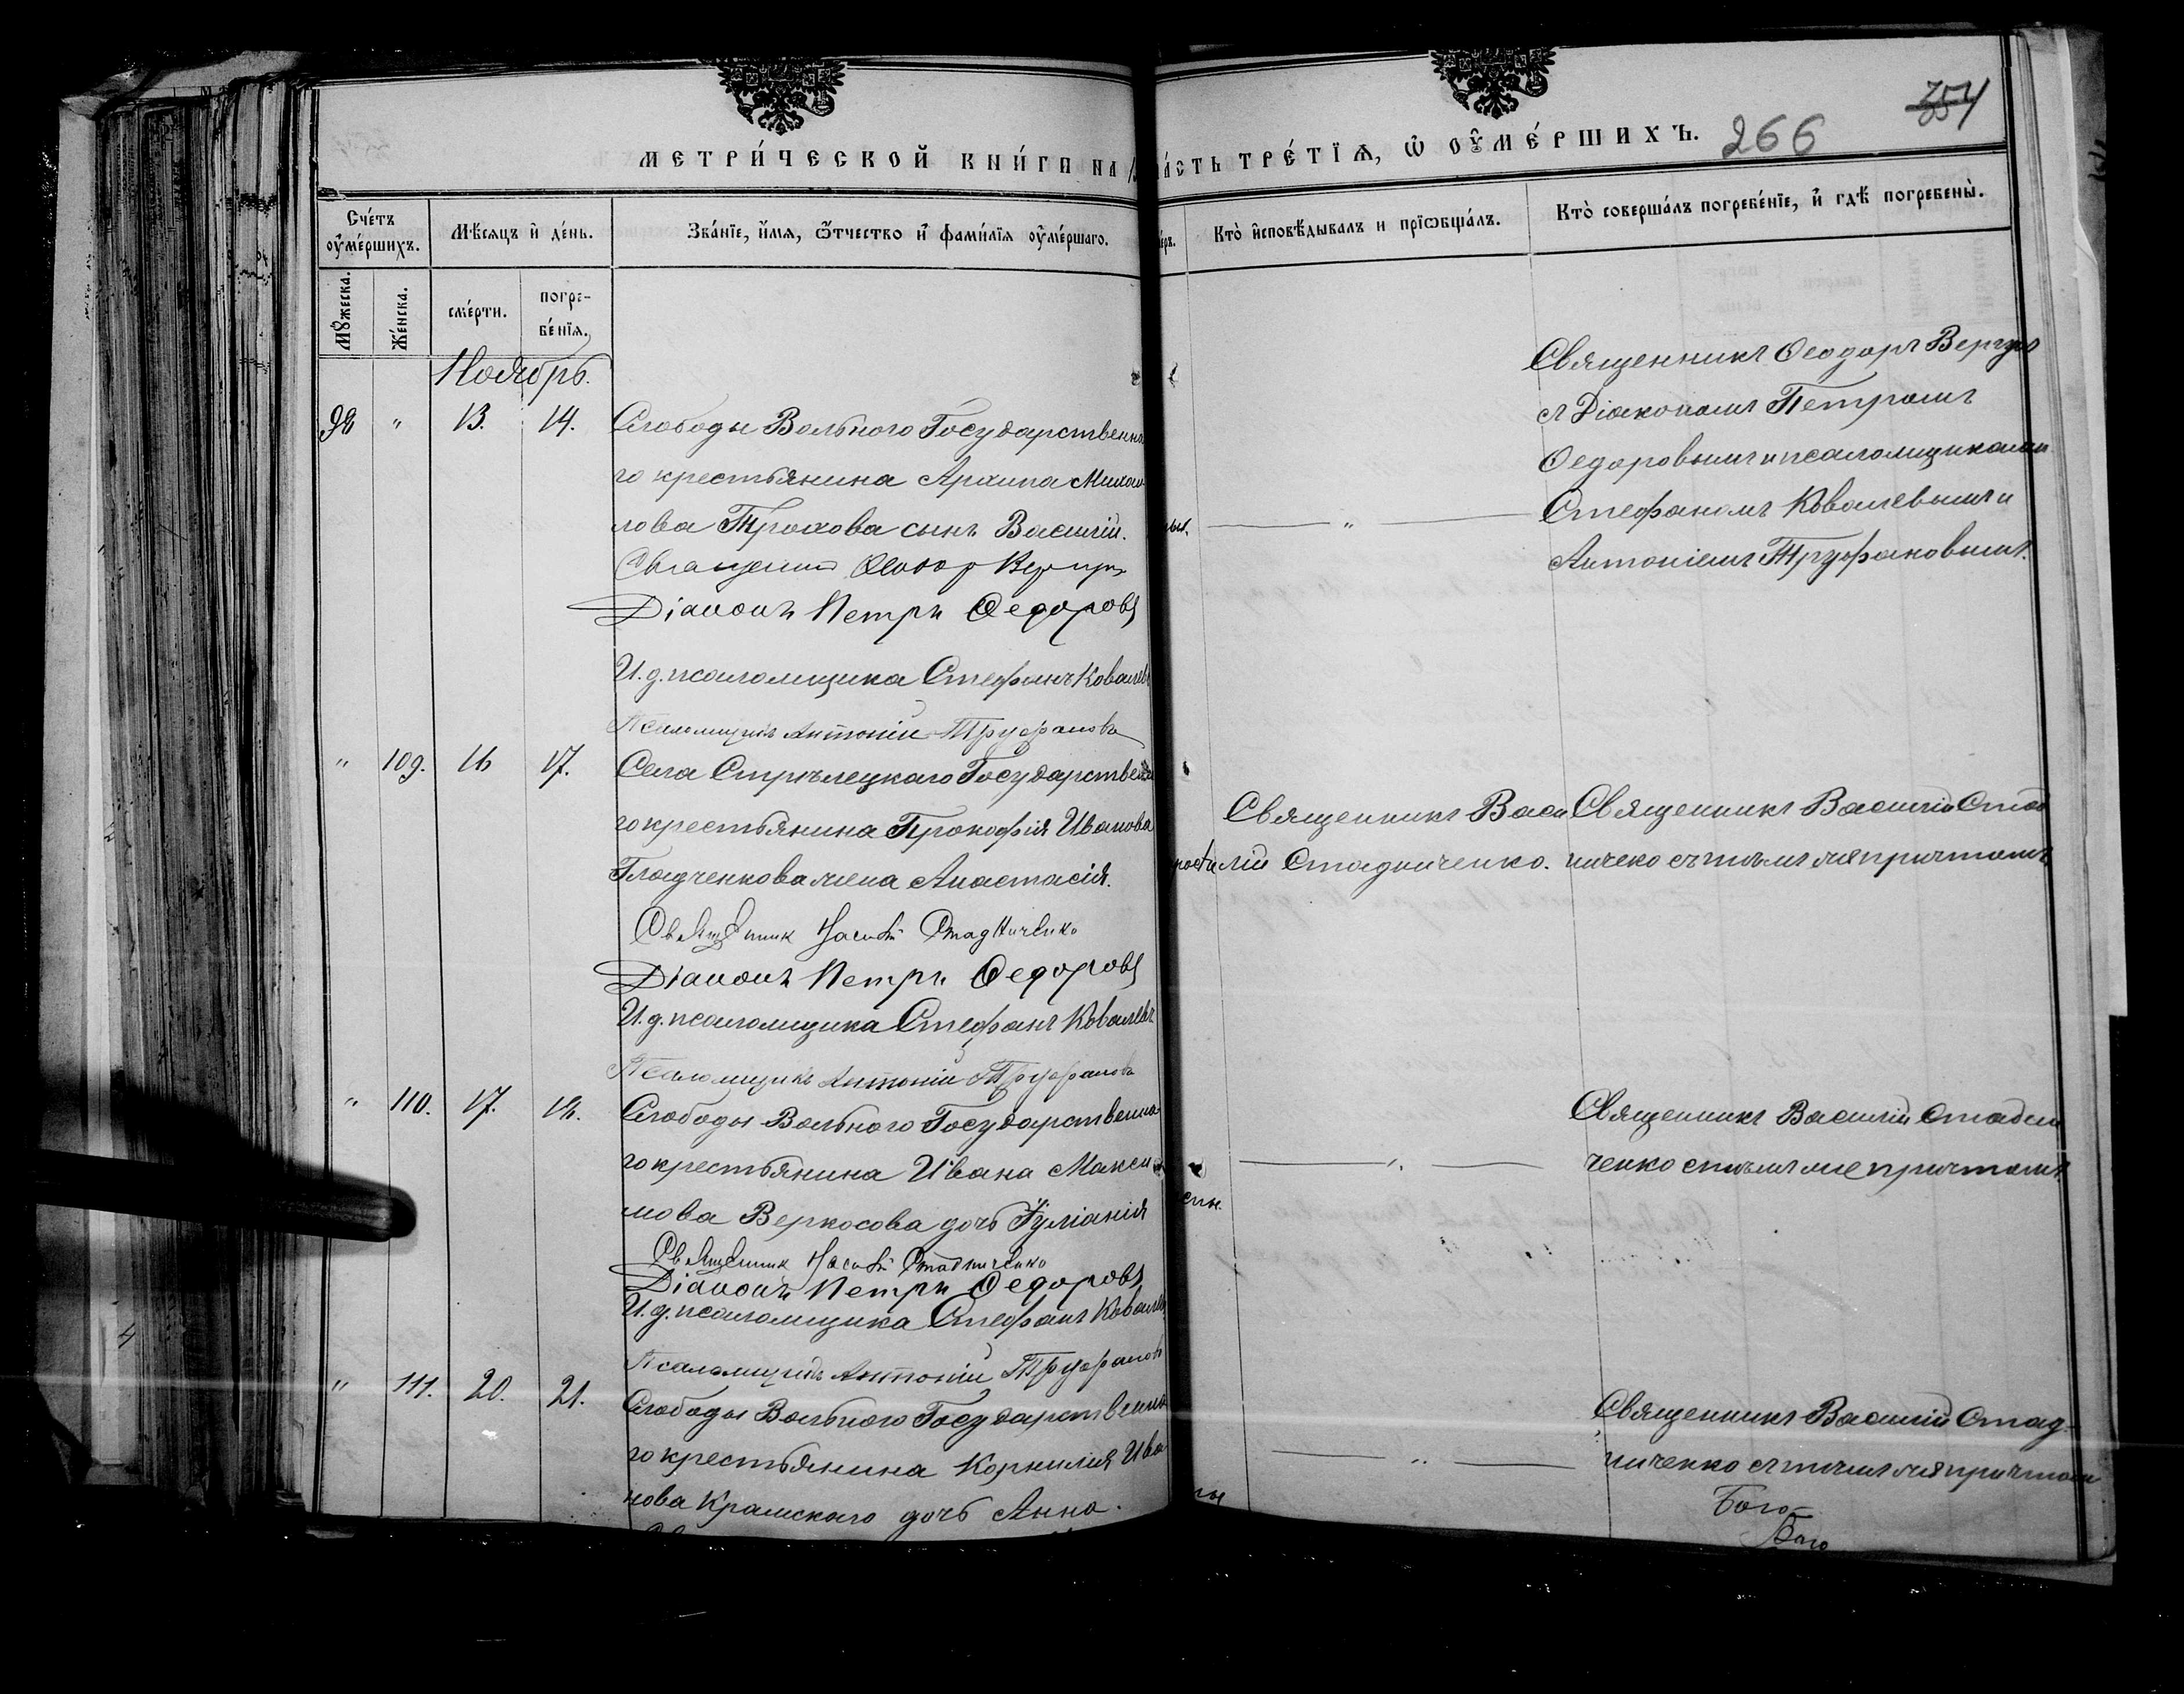 МЕТРИ́ЧЕСКОЙ КНИ́ГИ НА
ЧА́СТЬ ТРЕ́ТЇѦ, Ѡ҆ ОУ҆МЕ́РШИХЪ.
266
354
Сче́тъ оу҆ме́ршихъ.
Мѣ́сяцъ и҆ де́нь.
Зва́нїе, и҆́мя, ѻ҆́тчество и҆ фами́лїя оу҆ме́ршаго.
Кто̀ и҆сповѣ́дывалъ и прїѡбща́лъ.
Кто̀ соверша́лъ погребе́нїе, и҆ гдѣ̀ погребены̀.
Мꙋ́жеска.
Же́нска.
сме́рти.
погре-
бе́нїя.
Ноябрь.
98 " 13. 14. Слободы Вольнаго Государственна
го крестьянина Архипа Михаи
лова Трохова сынъ Василій.
Священникъ Ѳеодоръ Вергунъ
Діаконъ Петръ Ѳедоровъ
И.д. псаломщика Стефанъ Ковалевъ
Псаломщикъ Антоній Труфановъ
"
Священникъ Ѳеодоръ Вергунъ
съ Діакономъ Петромъ
Ѳедоровымъ и псаломщиками
Стефаномъ Ковалевымъ и
Антоніемъ Труфановымъ.
" 109. 16 17. Села Стрѣлецкаго Государственна
го крестьянина Прокофія Иванова
Гладченкова жена Анастасія.
Священник Василій Стадниченко
Діаконъ Петръ Ѳедоровъ
И.д. псаломщика Стефанъ Ковалевъ
Псаломщикъ Антоній Труфановъ
Священникъ Васи
лій Стадниченко.
Священникъ Василій Стад
ниченко съ тѣмъ же причтомъ
" 110. 17. 18. Слободы Вольнаго Государственна
го крестьянина Ивана Макси
мова Веркосова дочь Іуліанія
Священник Василій Стадниченко
Діаконъ Петръ Ѳедоровъ
И.д. псаломщика Стефанъ Ковалевъ
Псаломщикъ Антоній Труфановъ
"
Священникъ Василій Стадни
ченко съ тѣмъ же причтомъ.
" 111. 20. 21. Слободы Вольнаго Государственна
го крестьянина Корнилія Ива
нова Крамскаго дочь Анна.
"
Священникъ Василій Стад-
ниченко съ тѣмъ же причтомъ
Бого